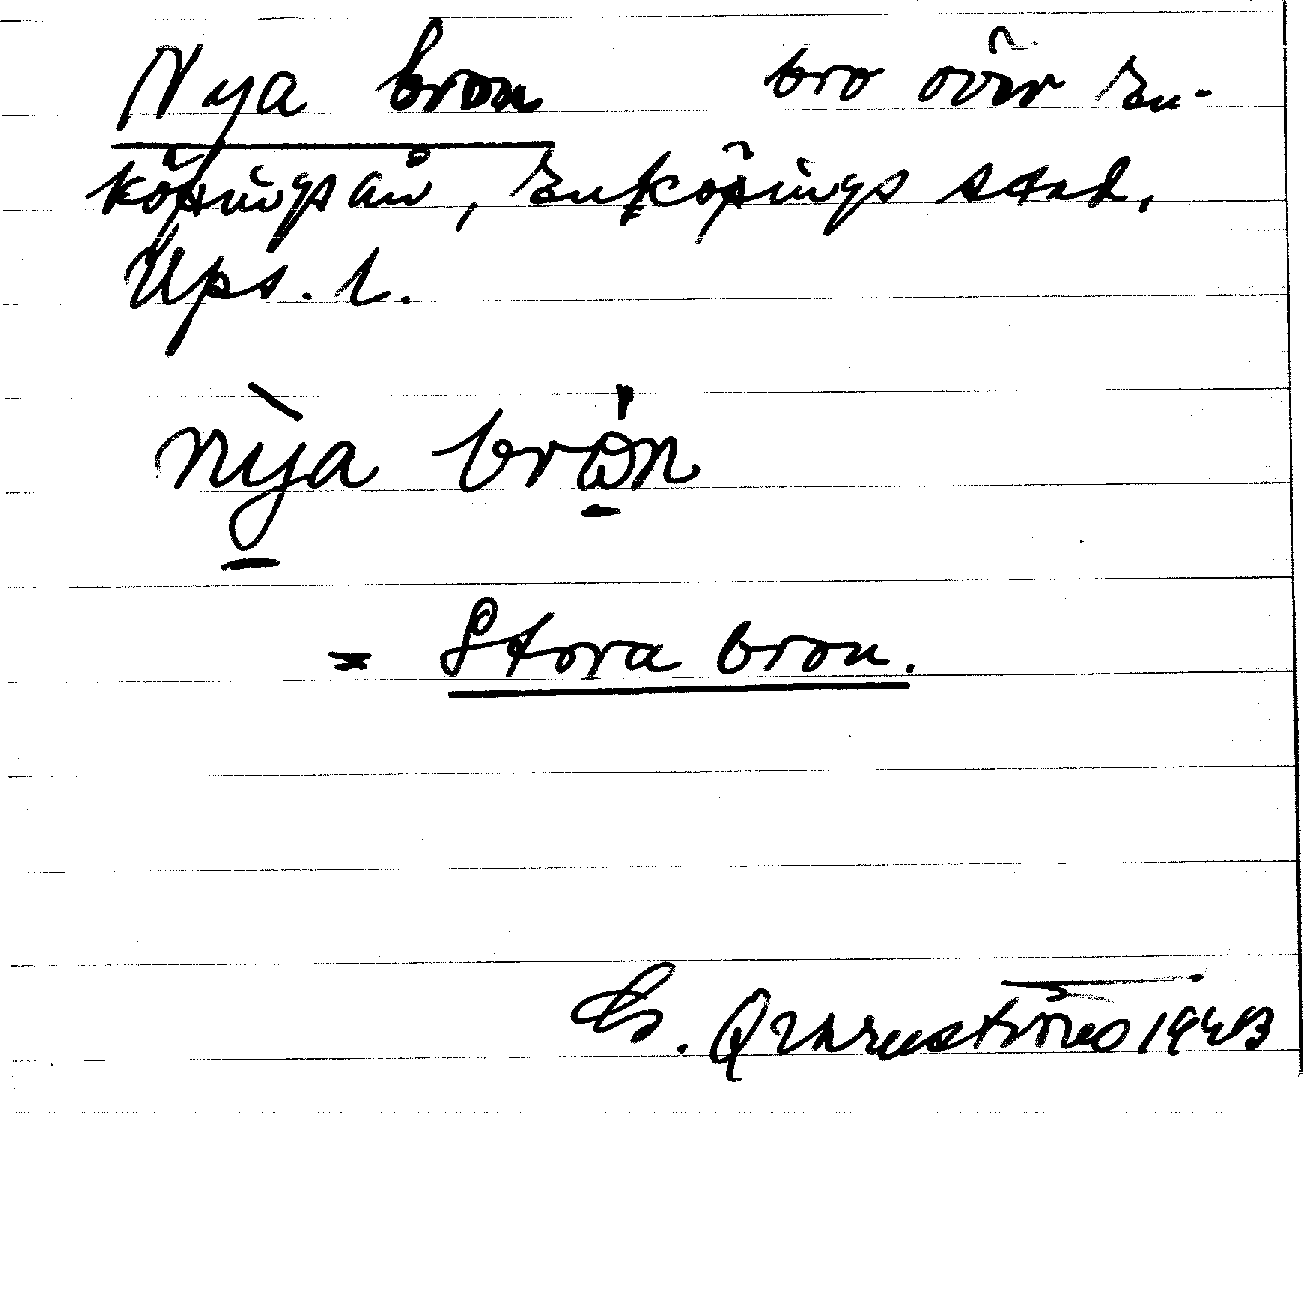 Nya bron bro över En-
köpingsån, Enköpings stad,
Ups. l.
nỳa brón
= Stora bron.
G. Qvarnström 1943